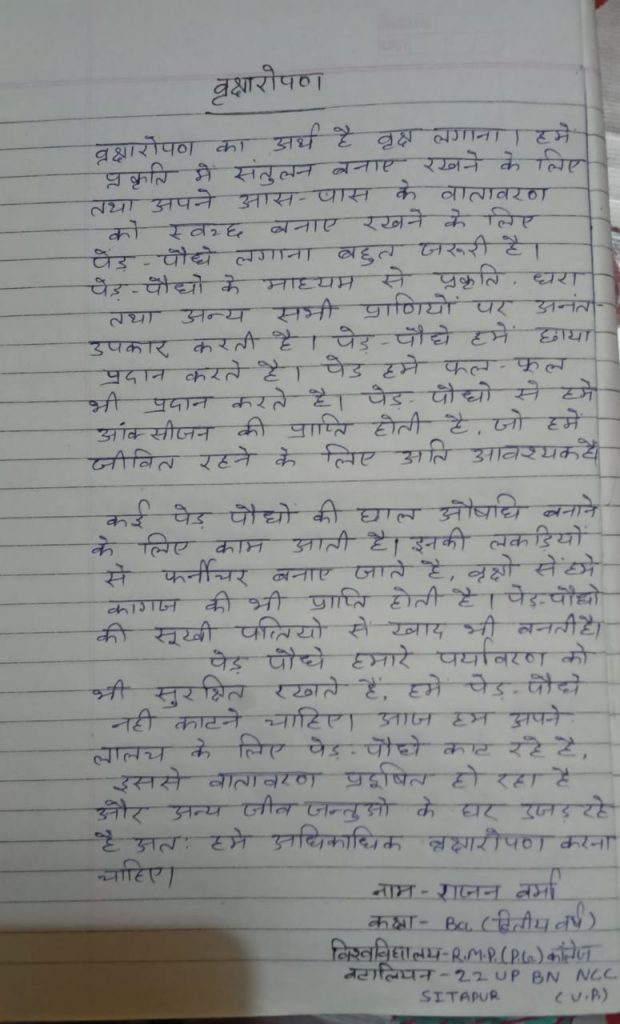 वृक्षारोपण
वृक्षारोपण का अर्थ है वृक्ष लगाना। हमे
प्रकृति में संतुलन बनाए रखने के लिए
तथा अपने आस-पास के वातावरण
को स्वच्छ बनाए रखने के लिए
पेड़-पौधे लगाना बहुत जरूरी है।
पेड़-पौधो के माध्यम से प्रकृति. धरा
तथा अन्य सभी प्राणियों पर अनंत-
उपकार करती है। पेड़-पौधे हमें छाया
प्रदान करते है। पेड हमे फल-फूल
भी प्रदान करते है। पेड़-पौधो से हमे
आंक्सीजन की प्राप्ति होती है, जो हमें
जीवित रहने के लिए अति आवश्यक है।
कई पेड़ पौधों की छाल औषधि बनाने
के लिए काम आती है। इनकी लकड़ियों
से फर्नीचर बनाए जाते है, वृक्षो सें हमे
कागज की भी प्राप्ति होती है। पेड़-पौधो
की सूखी पत्तियो से खाद भी बनती है।
पेड़ पौधे हमारे पर्यावरण को
भी सुरक्षित रखते हैं, हमें पेड़-पौधे
नही काटने चाहिए। आज हम अपने
लालच के लिए पेड़-पौधे काट रहे है,
इससे वातावरण प्रदूषित हो रहा है
और अन्य जीव जन्तुओ के घर उजड़ रहे
है अत: हमे अधिकाधिक वृक्षारोपण करना
चाहिए।
नाम - राजन वर्मा
कक्षा - Ba. (द्वितीय वर्ष)
विश्वविद्यालय-R.M.P.(P.G.) कॉलेज
बटालियन - 22 UP BN NCC
SITAPUR (U.P.)